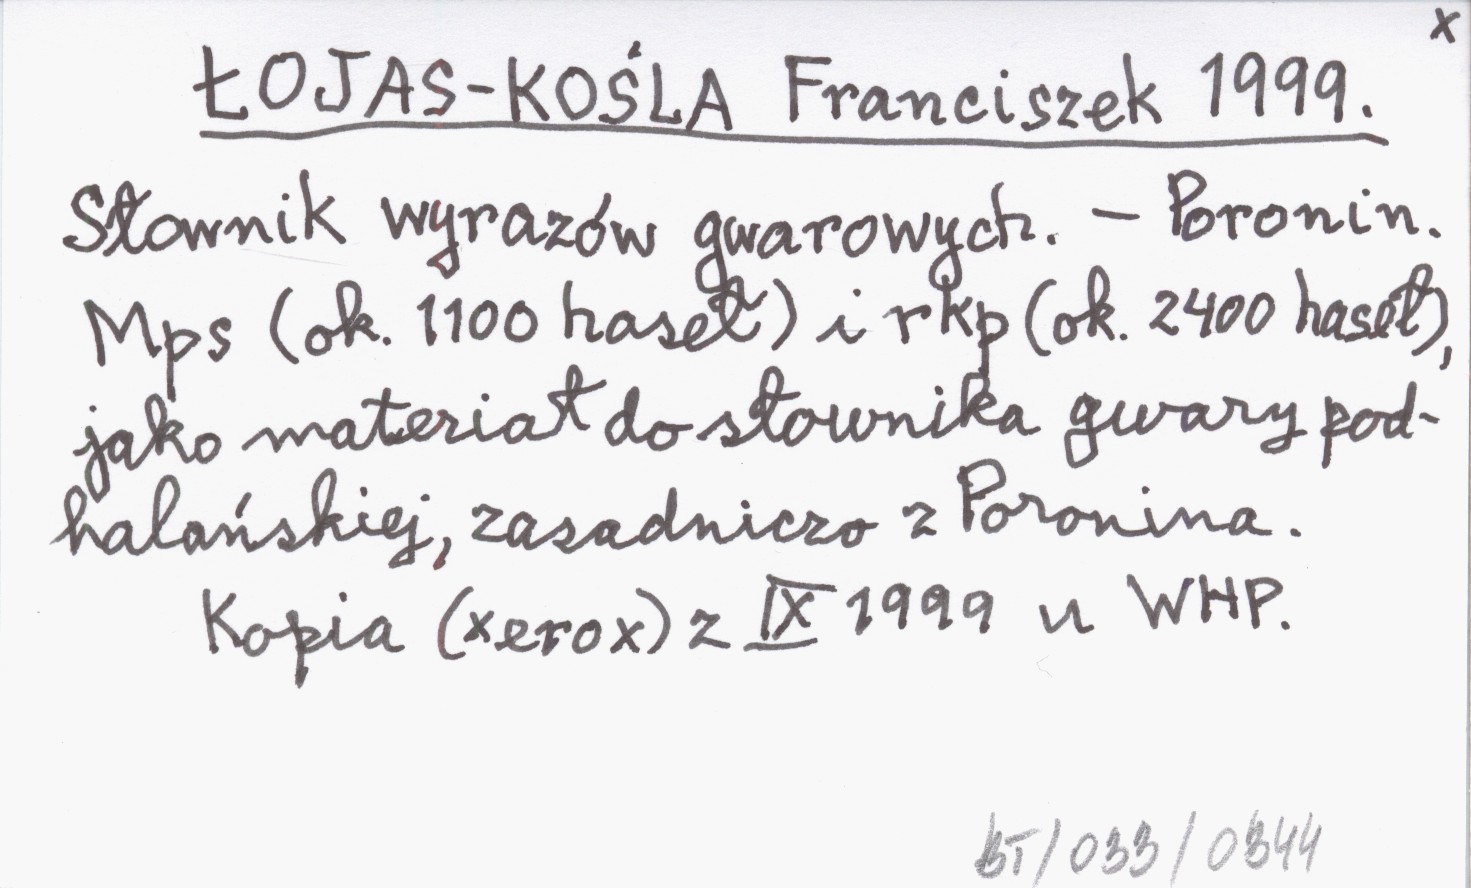 x
ŁOJAS-KOŚLA Franciszek 1999.
Słownik wyrazów gwarowych. – Poronin.
Mps (ok. 1100 haseł) i rkp (ok. 2400 haseł),
jako materiał do słownika gwary pod-
halańskiej, zasadniczo z Poronina.
Kopia (xerox) z IX 1999 u WHP.
BT/033/0344